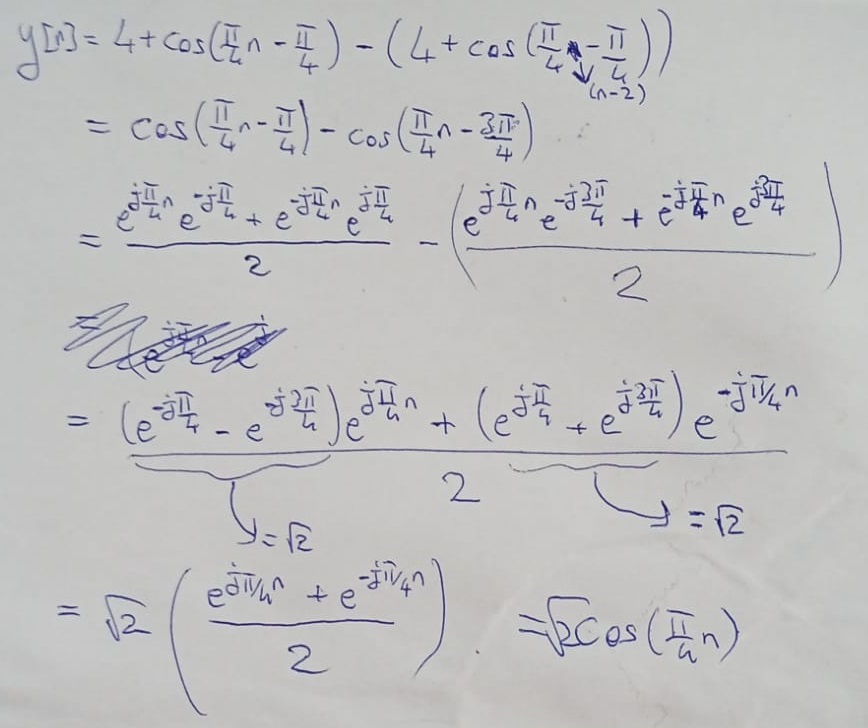 y[n] = 4 + cos(π/4 n - π/4) - (4 + cos(π/4 (n-2) - π/4))
= cos(π/4 n - π/4) - cos(π/4 n - 3π/4)
= (e^{jπ/4 n} e^{-jπ/4} + e^{-jπ/4 n} e^{jπ/4})/2 - ((e^{jπ/4 n} e^{-j3π/4} + e^{-jπ/4 n} e^{j3π/4})/2)
= ((e^{-jπ/4} - e^{-j3π/4}) e^{jπ/4 n} + (e^{jπ/4} + e^{j3π/4}) e^{-jπ/4 n})/2
= √2 = √2
= √2 ((e^{jπ/4 n} + e^{-jπ/4 n})/2). = √2 cos(π/4 n)